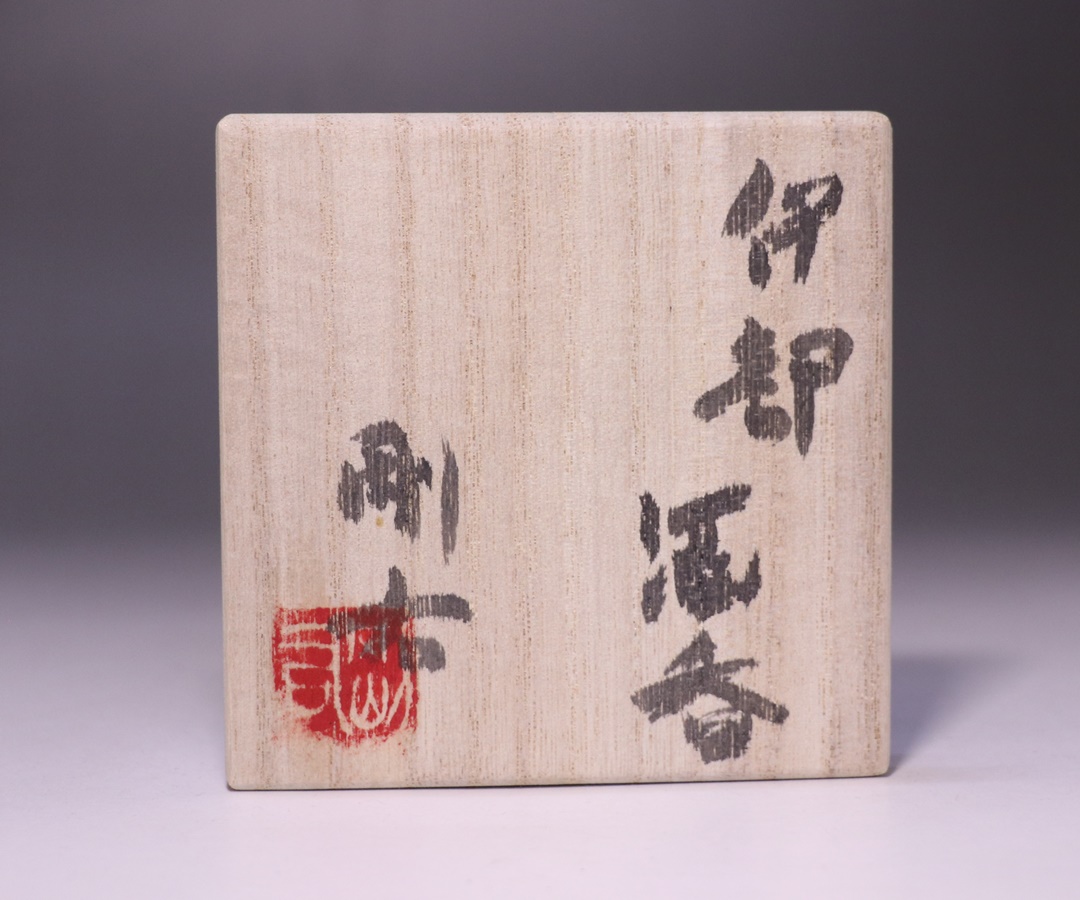 伊部酒呑
剛